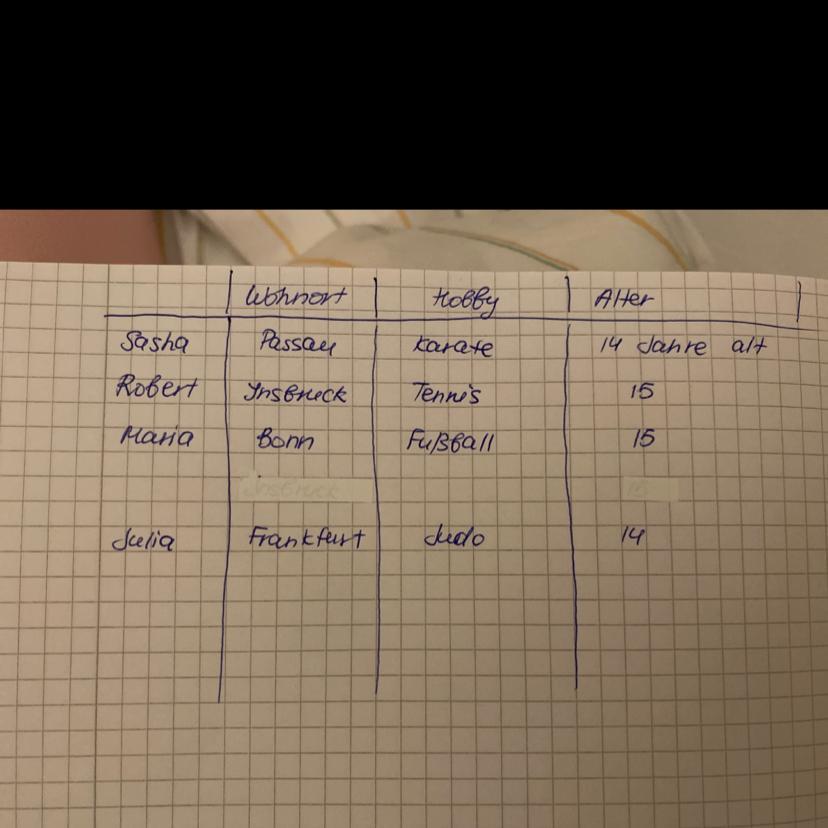 Wohnort Hobby Alter
Sasha Passau Karate 14 Jahre alt
Robert Ynsbruck Tennis 15
Maria Bonn Fußball 15
Julia Frankfurt Judo 14